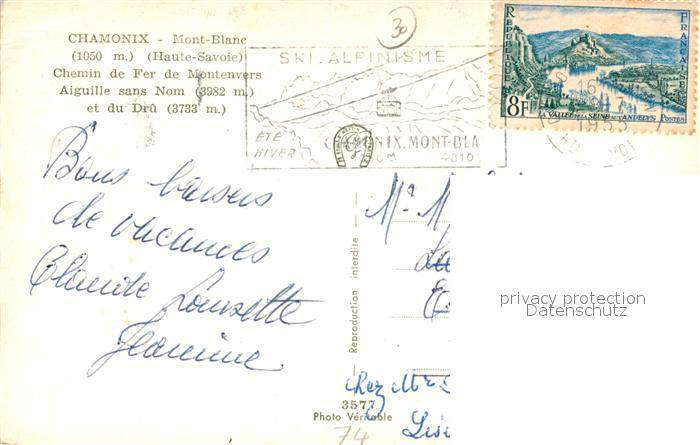 30
CHAMONIX - Mont-Blanc
(1050 m.) (Haute-Savoie)
Chemin de Fer de Montenvers
Aiguille sans Nom (3982 m.)
et du Drû (3733 m.)
SKI. ALPINISME
ÉTÉ
HIVER
CHAMONIX. MONT-BLA
REPUBLIQUE
FRANÇAISE
8F
LA VALLÉE DE LA SEINE AUX ANDELYS
POSTES
Bons baisers
de vacances
Claude Louisette
Jeannine
Reproduction interdite
Mr M
chez Mr
3577
Photo Véritable
74
privacy protection
Datenschutz